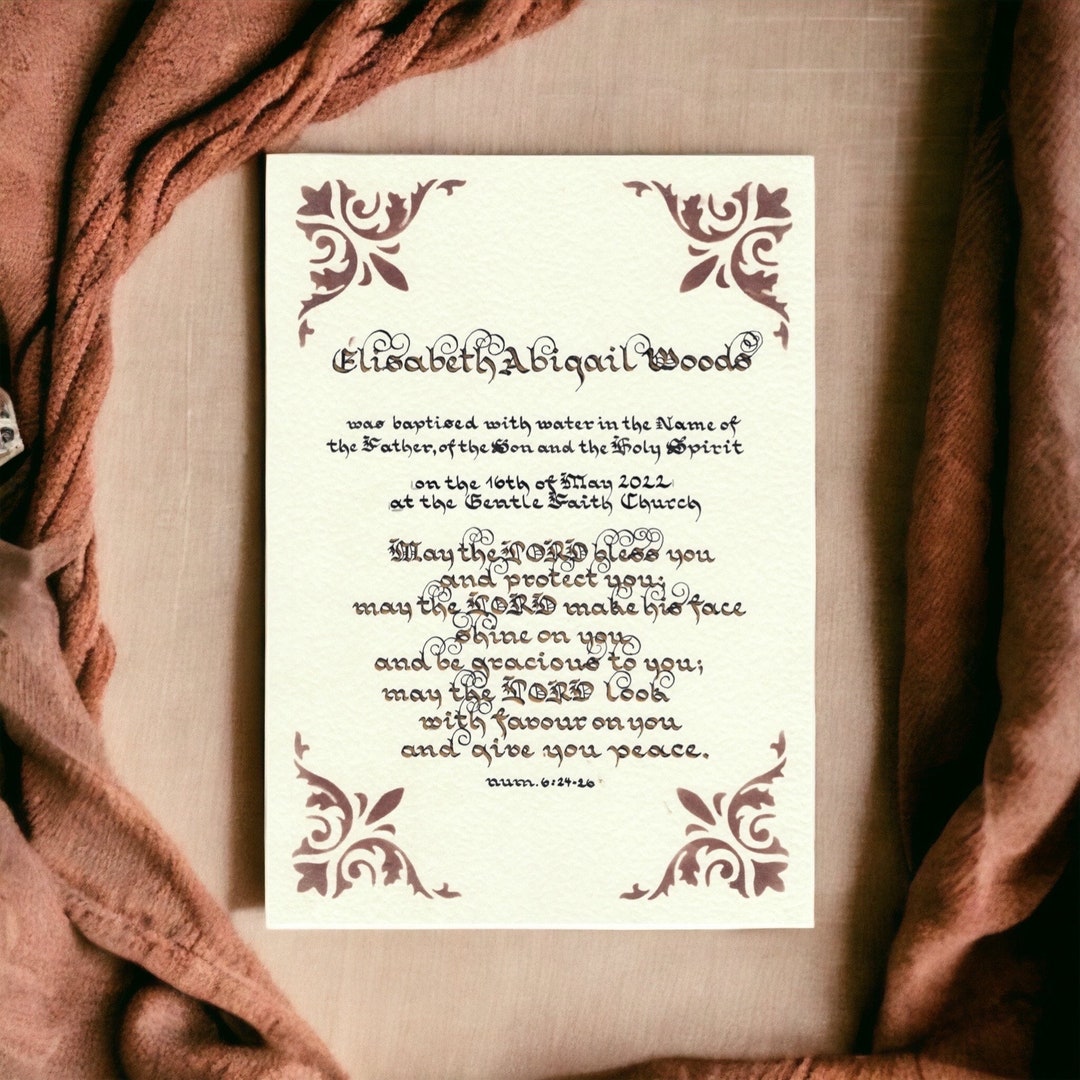 Elisabeth Abigail Woods
was baptised with water in the Name of
the Father, of the Son and the Holy Spirit
on the 16th of May 2022
at the Gentle Faith Church
May the LORD bless you
and protect you;
may the LORD make his face
shine on you
and be gracious to you;
may the LORD look
with favour on you
and give you peace.
num. 6:24-26